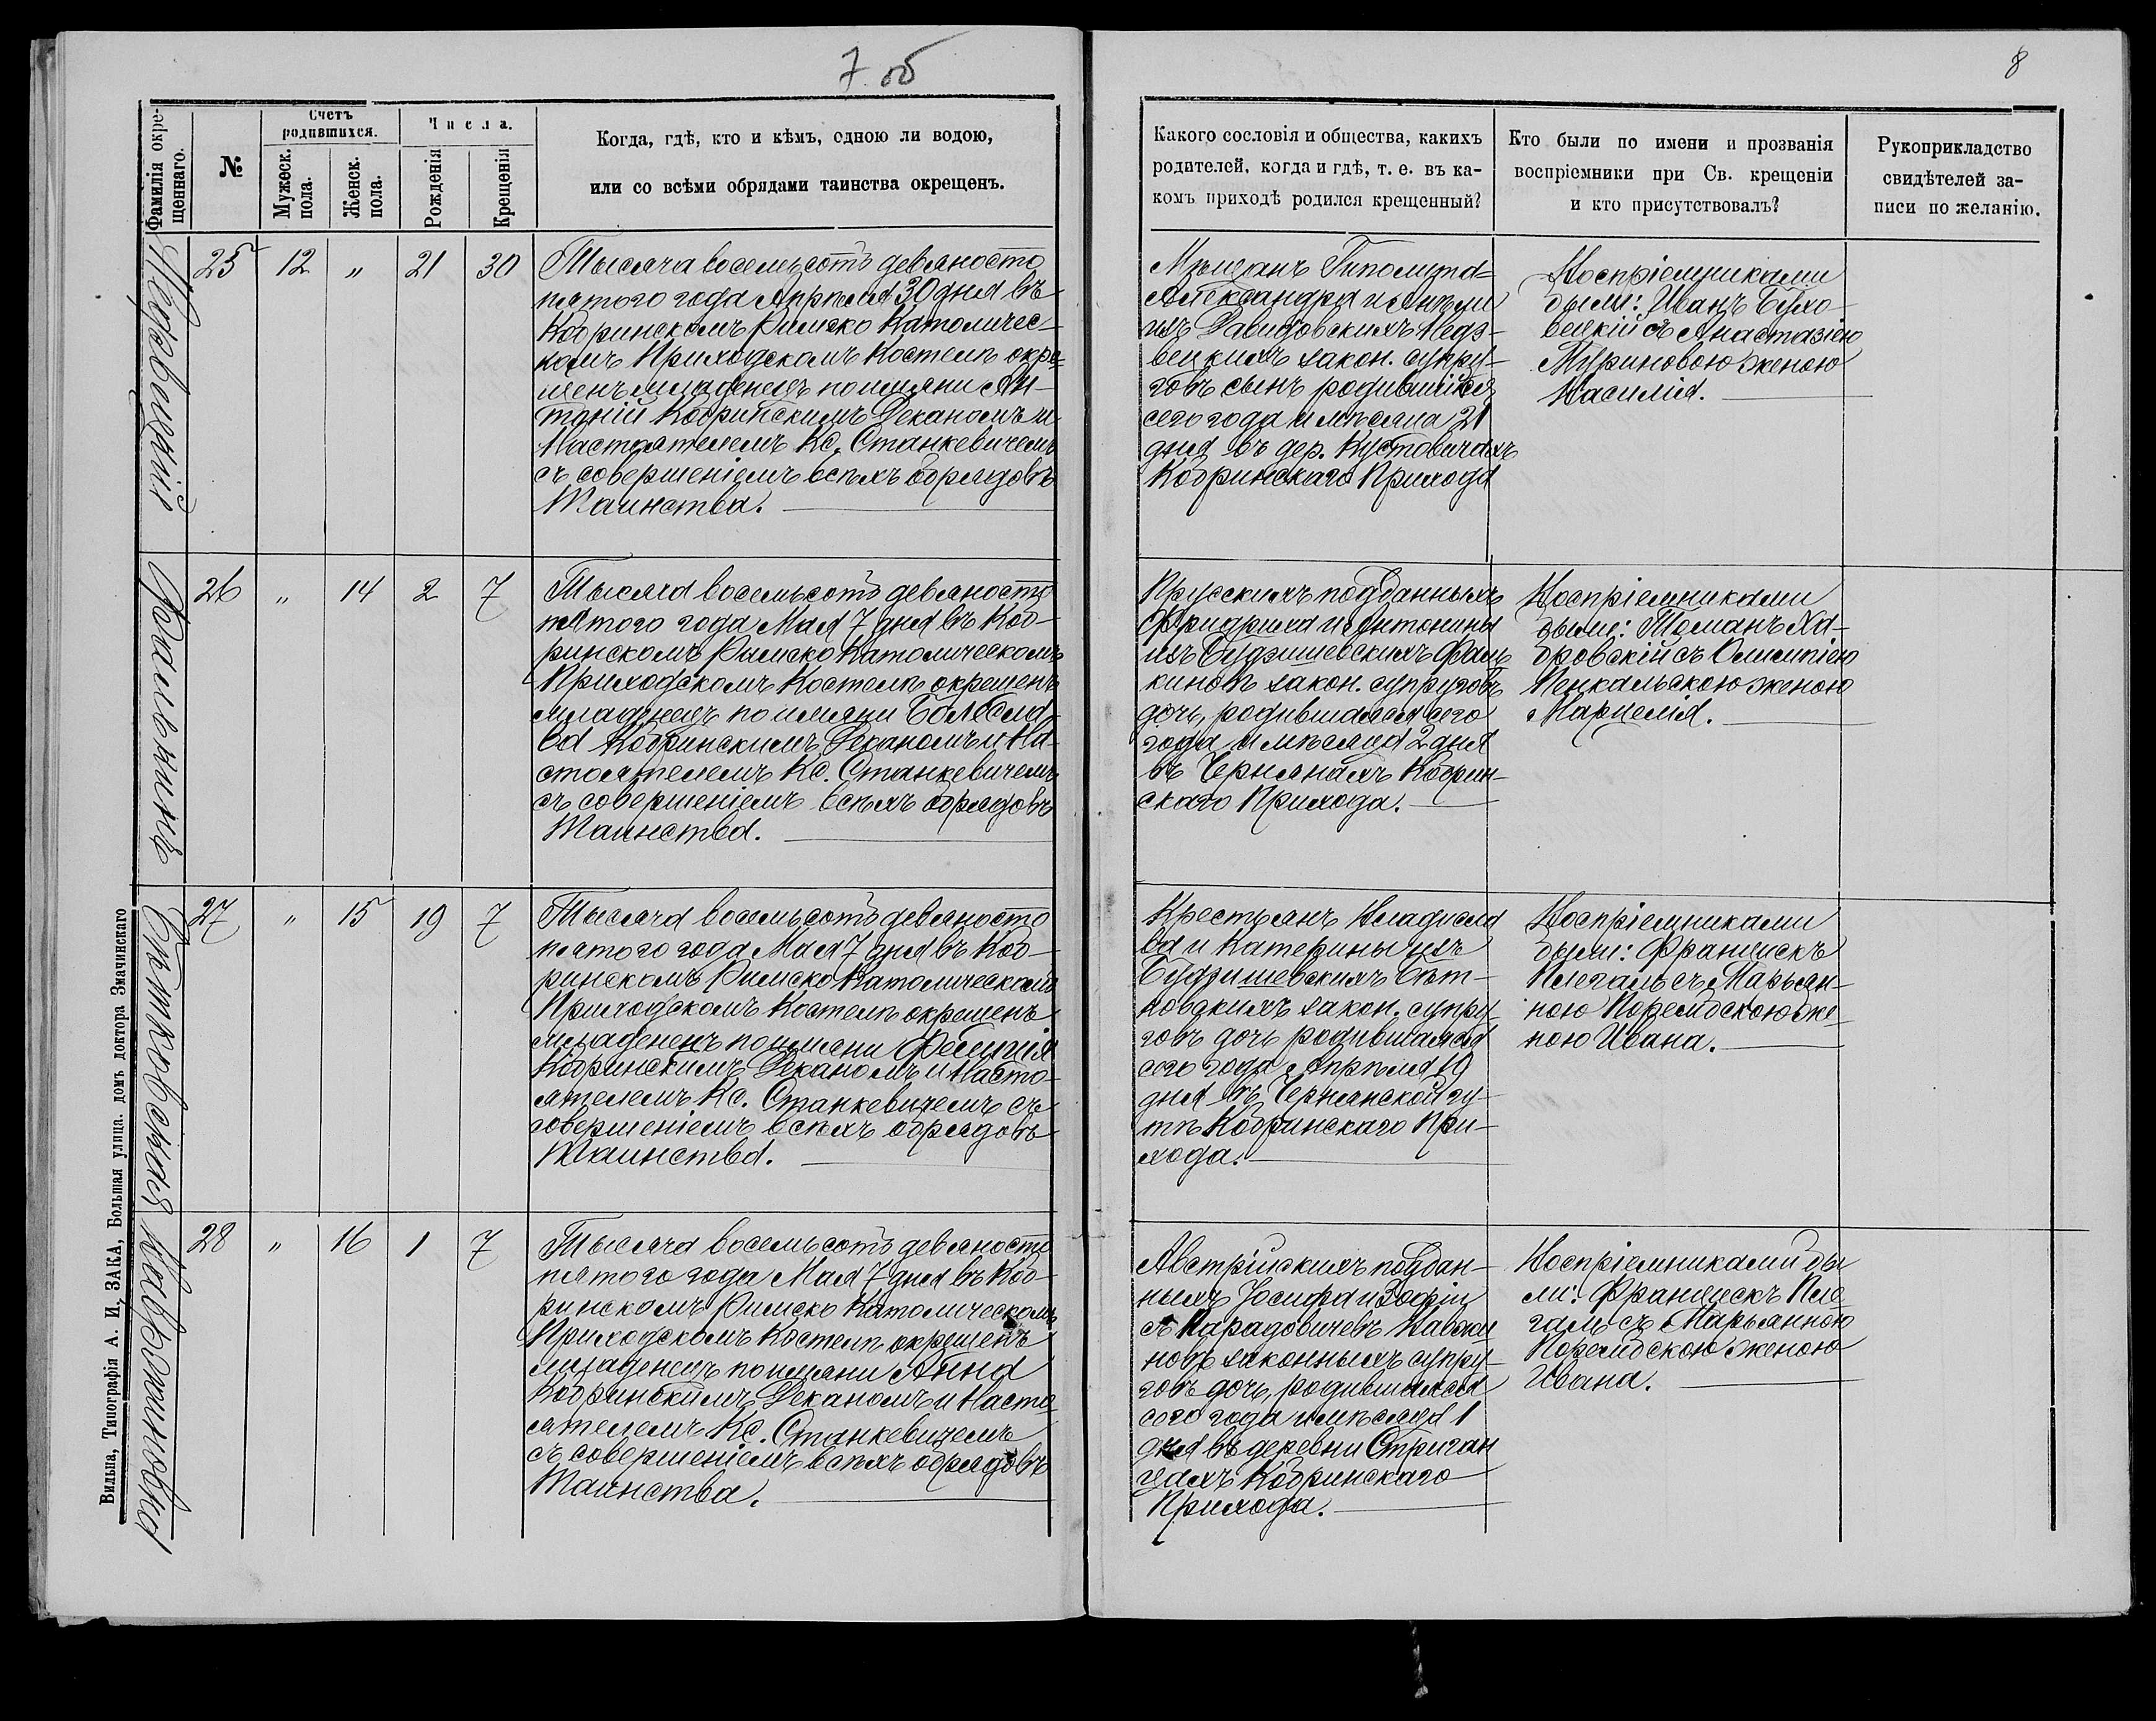 7 об
8
Фамилія окре-
щеннаго.
№
Счетъ
родившихся.
Мужеск.
пола.
Женск.
пола.
Числа.
Рожденія
Крещенія
Когда, гдѣ, кто и кѣмъ, одною ли водою,
или со всѣми обрядами таинства окрещенъ.
Какого сословія и общества, какихъ
родителей, когда и гдѣ, т. е. въ ка-
комъ приходѣ родился крещенный?
Кто были по имени и прозванія
воспріемники при Св. крещеніи
и кто присутствовалъ?
Рукоприкладство
свидѣтелей за-
писи по желанію.
25 12 " 21 30
Тысяча восемьсотъ девяносто
пятого года Апрѣля 30 дня въ
Кобринскомъ Римско Католичес-
комъ Приходскомъ Костелѣ окре-
щенъ младенецъ по имяни Ан-
тоній Кобринскимъ Деканомъ и
Настоятелемъ Кс. Станкевичемъ
съ совершеніемъ всѣхъ обрядовъ
Таинства.
Мѣщанъ Гиполита-
Александра и Анели
изъ Давидовскихъ Недз-
вецкихъ закон. супру-
говъ сынъ родившійся
сего года и мѣсяца 21
дня въ дер. Кустовичахъ
Кобринскаго Прихода
Воспріемниками
были: Иванъ Бухо-
вецкій съ Анастазіею
Муриновою женою
Василія.
Фалькинъ
26 " 14 2 7
Тысяча восемьсотъ девяносто
пятого года Мая 7 дня въ Коб-
ринскомъ Римско Католическомъ
Приходскомъ Костелѣ окрещенъ
младенецъ по имяни Болесла-
ва Кобринскимъ Деканомъ и На-
стоятелемъ Кс. Станкевичемъ
съ совершеніемъ всѣхъ обрядовъ
Таинства.
Прусскихъ подданныхъ
Фридриха и Антонины
изъ Будзишевскихъ Фаль
киновъ закон. супруговъ
дочь, родившаяся сего
года и мѣсяца 2 дня
въ Чернянахъ Кобрин-
скаго Прихода.
Воспріемниками
были: Томанъ Ха-
бровскій съ Олимпіею
Пенкальскою женою
Марцелія.
27 " 15 19 7
Тысяча восемьсотъ девяносто
пятого года Мая 7 дня въ Коб-
ринскомъ Римско Католическомъ
Приходскомъ Костелѣ окрещенъ
младенецъ по имяни Фелиція
Кобринскимъ Деканомъ и Насто-
ятелемъ Кс. Станкевичемъ съ
совершеніемъ всѣхъ обрядовъ
Таинства.
Крестьянъ Владисла
ва и Катерины изъ
Будзишевскихъ Бѣт-
ковскихъ закон. супру-
говъ дочь родившаяся
сего года Апрѣля 19
дня въ Чернянской гу-
тѣ Кобринскаго При-
хода.
Воспріемниками
были: Францискъ
Плегаль съ Марьян-
ною Порембскою же-
ною Ивана.
28 " 16 1 7
Тысяча восемьсотъ девяносто
пятого года Мая 7 дня въ Коб-
ринскомъ Римско Католическомъ
Приходскомъ Костелѣ окрещенъ
младенецъ по имяни Анна
Кобринскимъ Деканомъ и Насто
ятелемъ Кс. Станкевичемъ
съ совершеніемъ всѣхъ обрядовъ
Таинства.
Австрійскихъ поддан-
ныхъ Іосифа и Зофіи
законныхъ супру-
говъ дочь, родившаяся
сего года и мѣсяца 1
дня въ деревни Стриган
цахъ Кобринскаго
Прихода.
Воспріемниками бы
ли: Францискъ Пле
галь съ Марьянною
Порембскою женою
Ивана.
Вильна, Типографія А. И. ЗАКА, Большая улица. домъ доктора Змачинскаго